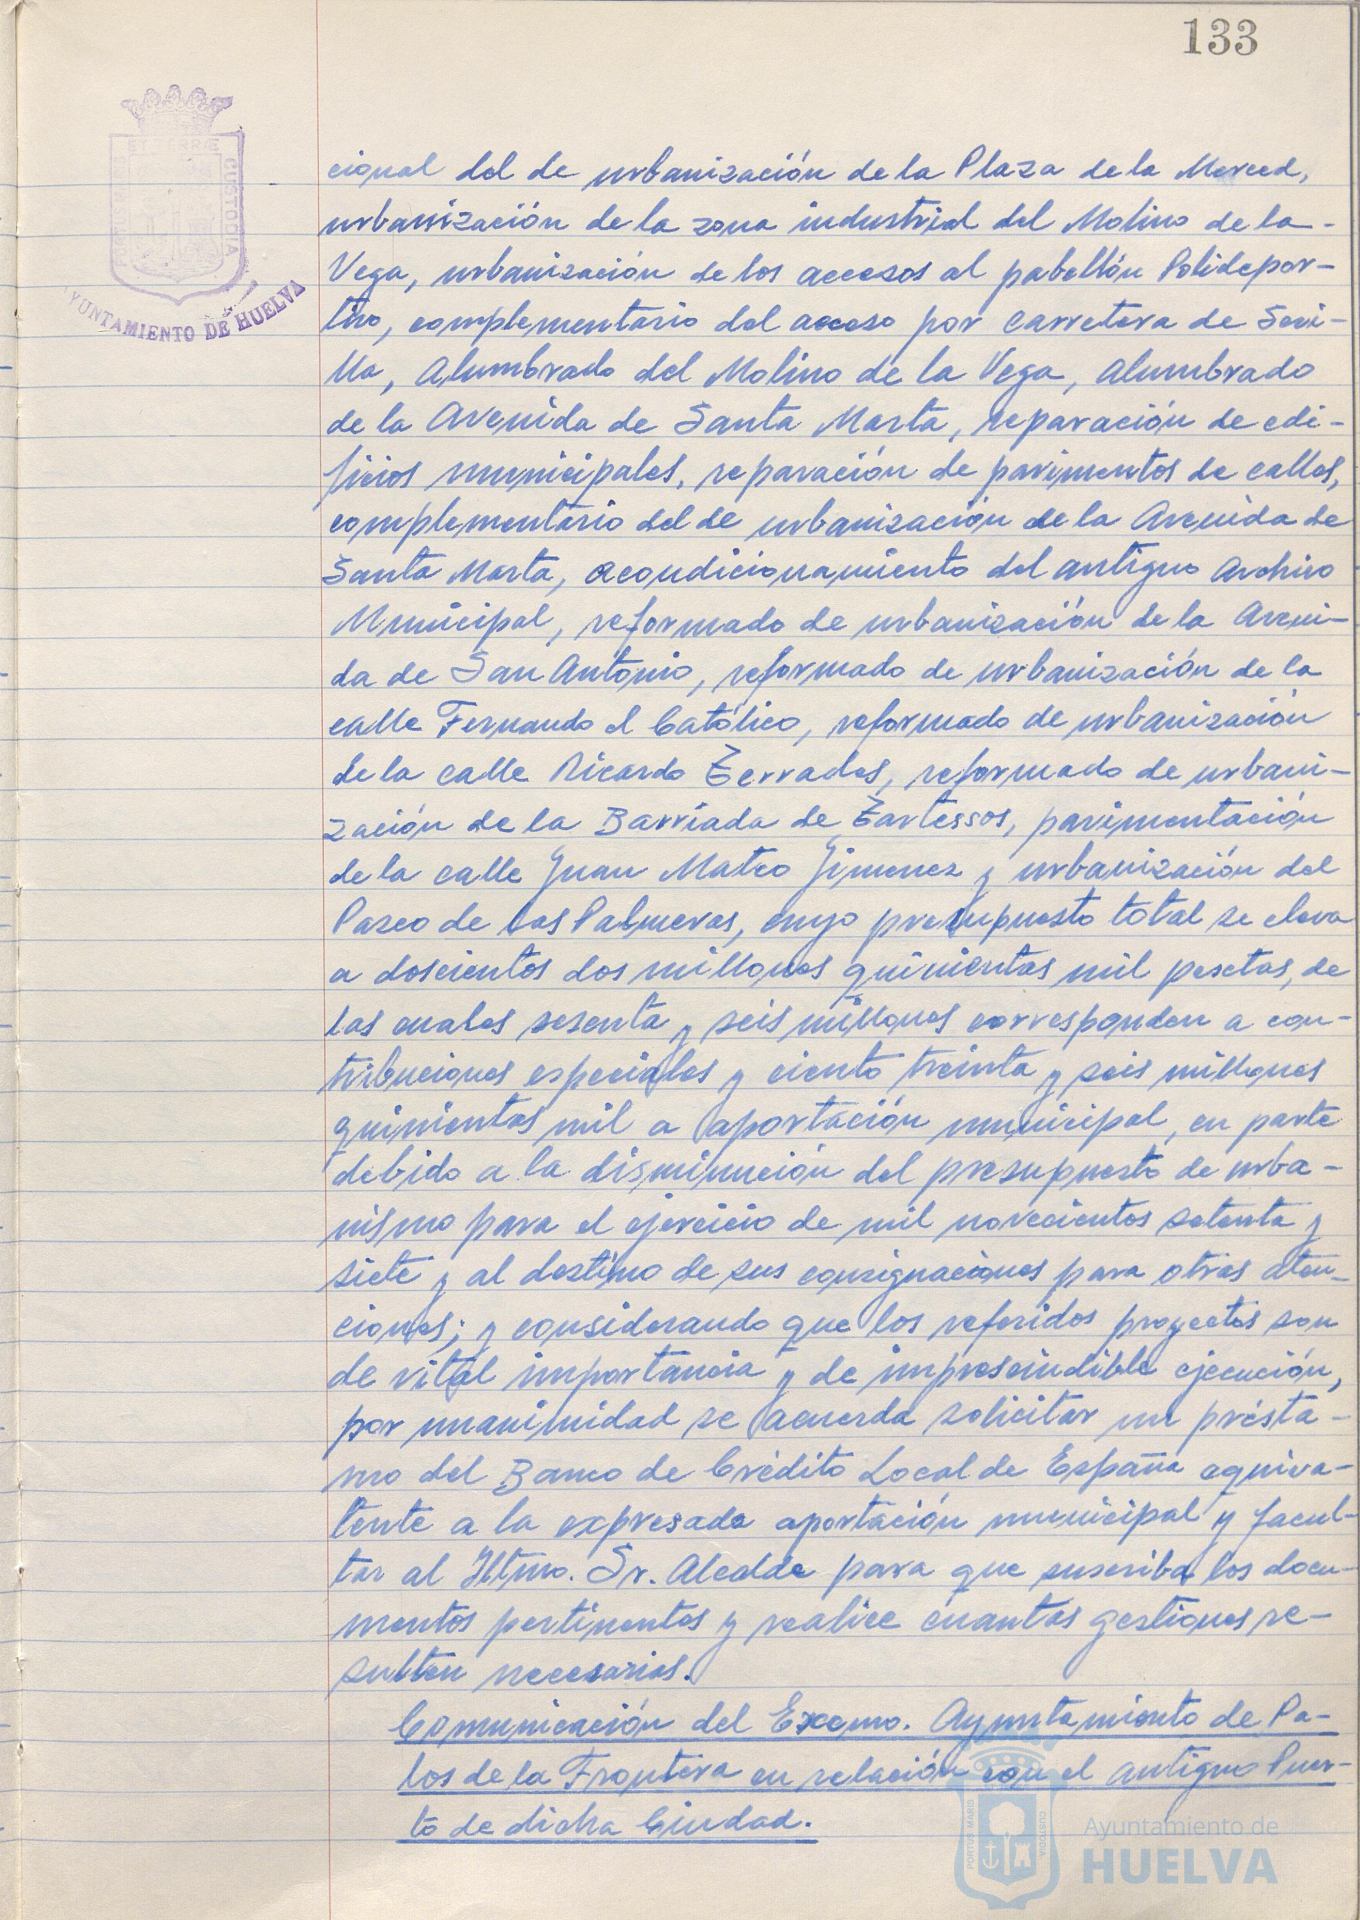 133
ET TERRÆ
PORTUS MARIS
CUSTODIA
AYUNTAMIENTO DE HUELVA
cional del de urbanización de la Plaza de la Merced,
urbanización de la zona industrial del Molino de la-
Vega, urbanización de los accesos al pabellón Polidepor-
tivo, complementario del acceso por carretera de Sevi-
lla, Alumbrado del Molino de la Vega, Alumbrado
de la Avenida de Santa Marta, reparación de edi-
ficios municipales, reparación de pavimentos de calles,
complementario del de urbanización de la Avenida de
Santa Marta, acondicionamiento del antiguo Archivo
Municipal, reformado de urbanización de la Aveni-
da de San Antonio, reformado de urbanización de la
calle Fernando el Católico, reformado de urbanización
de la calle Ricardo Terrades, reformado de urbani-
zación de la Barriada de Tartessos, pavimentación
de la calle Juan Mateo Jimenez y urbanización del
Paseo de las Palmeras, cuyo presupuesto total se eleva
a doscientos dos millones quinientas mil pesetas, de
las cuales sesenta y seis millones corresponden a con-
tribuciones especiales y ciento treinta y seis millones
quinientas mil a aportación municipal, en parte
debido a la disminución del presupuesto de urba-
nismo para el ejercicio de mil novecientos setenta y
siete y al destino de sus consignaciones para otras aten-
ciones; y considerando que los referidos proyectos son
de vital importancia y de imprescindible ejecución,
por unanimidad se acuerda solicitar un présta-
mo del Banco de Crédito Local de España equiva-
lente a la expresada aportación municipal y facul-
tar al Iltmo. Sr. Alcalde para que suscriba los docu-
mentos pertinentes y realice cuantas gestiones re-
sulten necesarias.
Comunicación del Excmo. Ayuntamiento de Pa-
los de la Frontera en relación con el antiguo Puer-
to de dicha Ciudad.
PORTUS MARIS
CUSTODIA
Ayuntamiento de
HUELVA